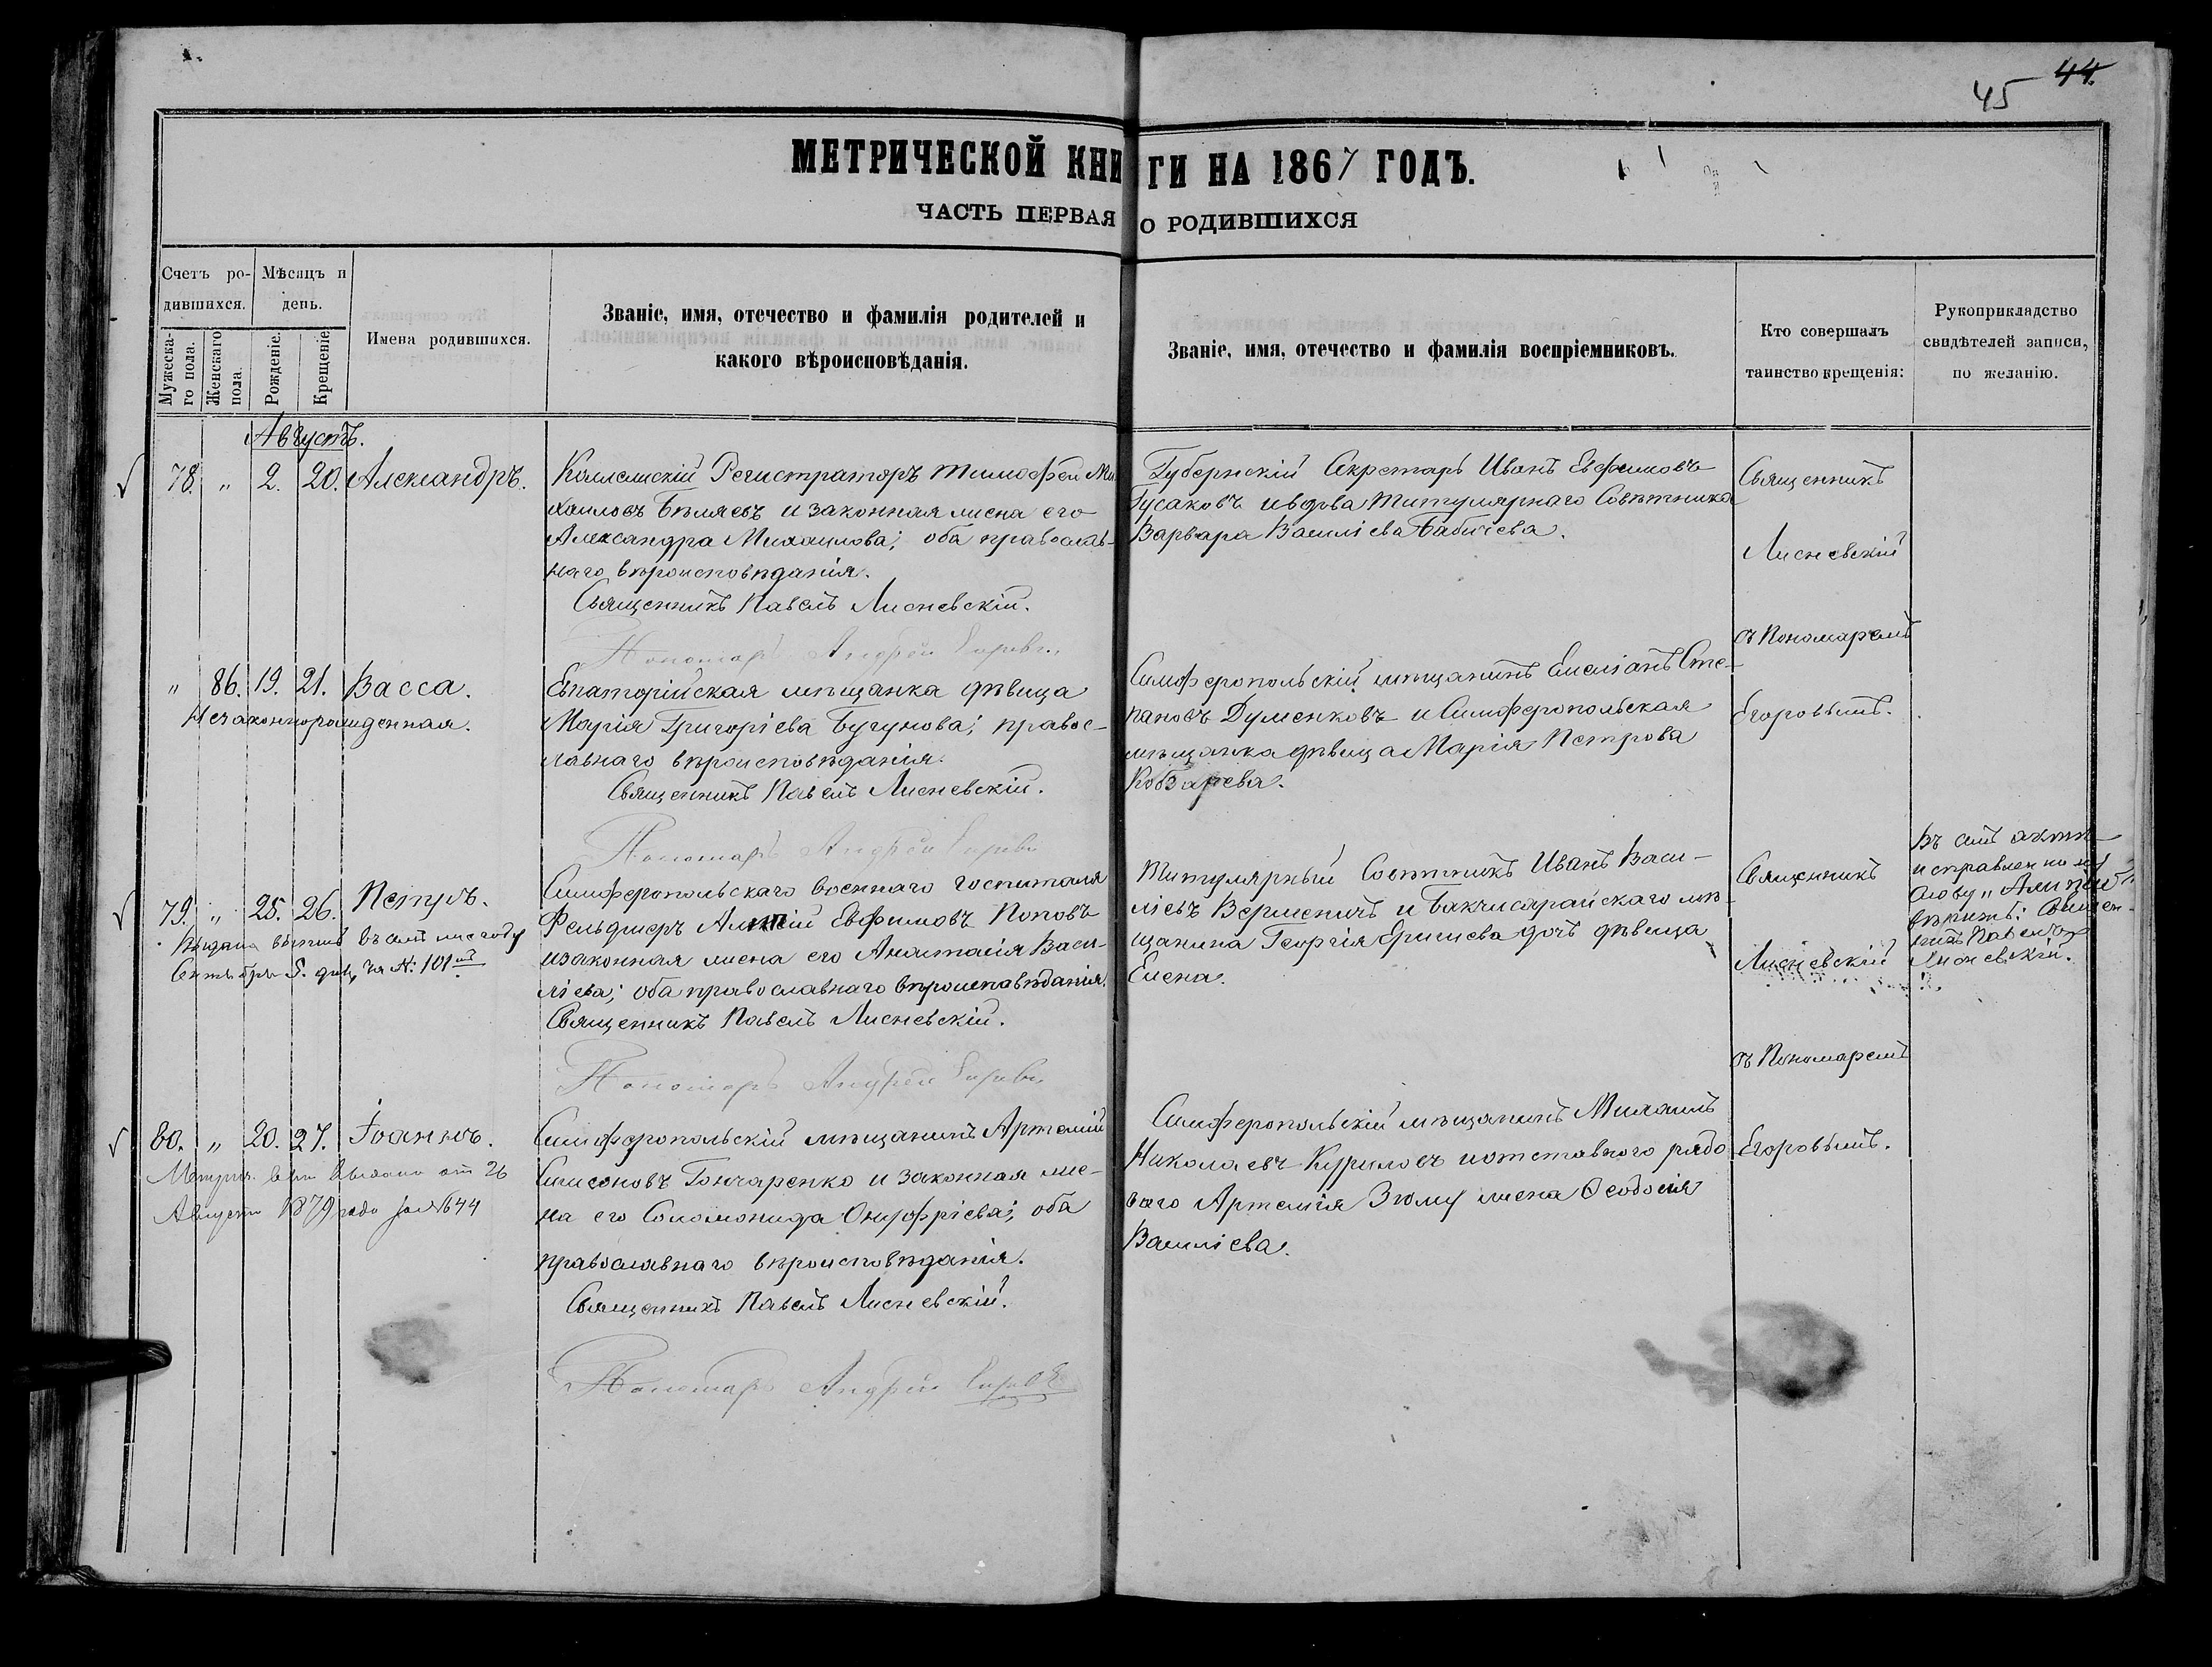 45 44.
МЕТРИЧЕСКОЙ КНИГИ НА 1867 ГОДЪ.
ЧАСТЬ ПЕРВАЯ О РОДИВШИХСЯ
Счетъ ро-
дившихся.
Мужеска-
го пола.
Женскаго
пола.
Мѣсяцъ и
день.
Рожденіе.
Крещеніе.
Имена родившихся.
Званіе, имя, отечество и фамилія родителей и
какого вѣроисповѣданія.
Званіе, имя, отечество и фамилія воспріемниковъ.
Кто совершалъ
таинство крещенія:
Рукоприкладство
свидѣтелей записи,
по желанію.
Августъ.
78. „ 2. 20. Александръ.
Коллежскій Регистраторъ Тимофей Ми-
хаиловъ Бѣляевъ и законная жена его
Александра Михаилова; оба православ-
наго вѣроисповѣданія.
Священникъ Павелъ Лисневскій.
Пономарь Андрей Егоровъ
Губернскій Секретарь Иванъ Евфимовъ
Гусаковъ и вдова Титулярнаго Совѣтника
Варвара Василіева Бабичева.
Священникъ
Лисневскій
съ Пономаремъ
Егоровымъ.
„ 86. 19. 21. Васса.
Незаконнорожденная.
Евпаторійская мѣщанка дѣвица
Марія Григоріева Бугунова; правос-
лавнаго вѣроисповѣданія.
Священникъ Павелъ Лисневскій.
Пономарь Андрей Егоровъ
Симферопольскій мѣщанинъ Емеліанъ Сте-
пановъ Думенковъ и Симферопольская
мѣщанка дѣвица Марія Петрова
Кобзарева.
79. „ 25. 26. Петръ.
Выдана выпись въ семъ же году
Сентября 5. дня, за №: 101мъ
Симферопольскаго военнаго госпиталя
Фельдшеръ Алипій Евфимовъ Поповъ
и законная жена его Анастасія Васи-
ліева; оба православнаго вѣроисповѣданія.
Священникъ Павелъ Лисневскій.
Пономарь Андрей Егоровъ
Титулярный Совѣтникъ Иванъ Васи-
ліевъ Верменичъ и Бакчисарайскаго мѣ-
щанина Георгія дочь дѣвица
Елена.
Священникъ
Лисневскій
съ Пономаремъ
Егоровымъ.
Въ семъ актѣ
исправленному
слову „Алипій"
вѣрить: Священ-
никъ Павелъ
Лисневскій.
80. „ 20. 27. Іоаннъ.
Метрич. выдано от 26
Августа 1879 года за № 644
Симферопольскій мѣщанинъ Артемій
Симеоновъ Гончаренко и законная же-
на его Соломонида Онуфріева; оба
православнаго вѣроисповѣданія.
Священникъ Павелъ Лисневскій.
Пономарь Андрей Егоровъ
Симферопольскій мѣщанинъ Михаилъ
Николаевъ Куриловъ и отставного рядо-
ваго Артемія Зюму жена Ѳеодосія
Василіева.